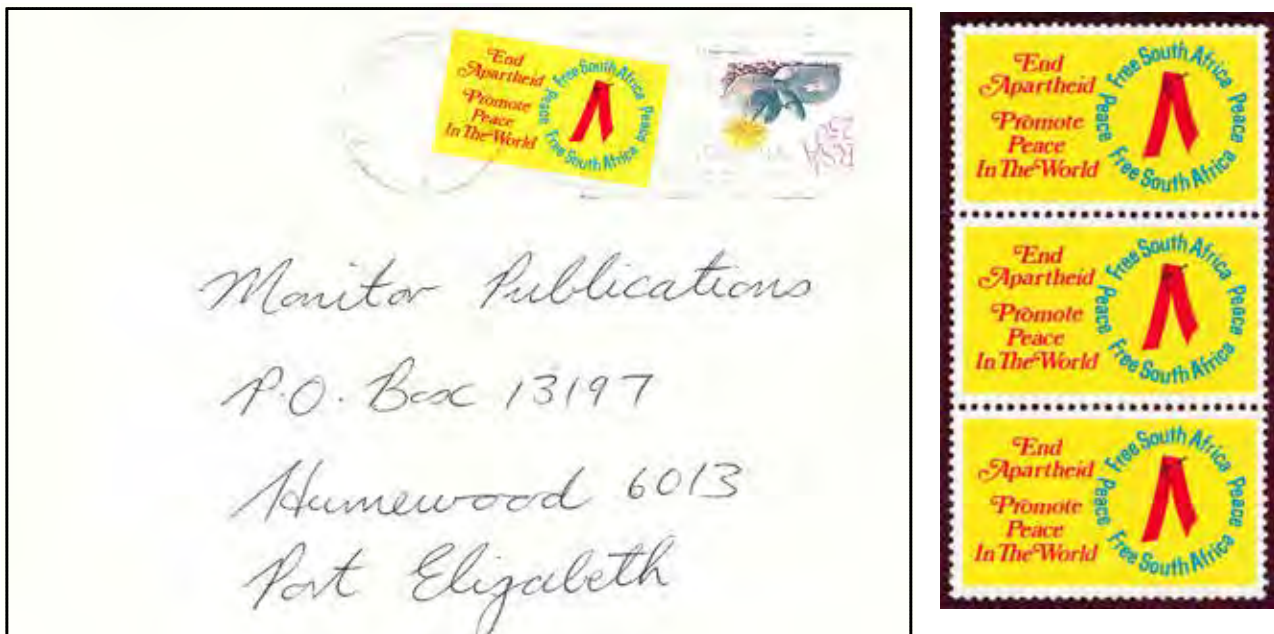 End
Apartheid
Promote
Peace
In The World
Free South Africa
Peace
Free South Africa
Peace
RSA
25c
Monitor Publications
P.O. Box 13197
Humewood 6013
Port Elizabeth
End
Apartheid
Promote
Peace
In The World
Free South Africa
Peace
Free South Africa
Peace
End
Apartheid
Promote
Peace
In The World
Free South Africa
Peace
Free South Africa
Peace
End
Apartheid
Promote
Peace
In The World
Free South Africa
Peace
Free South Africa
Peace